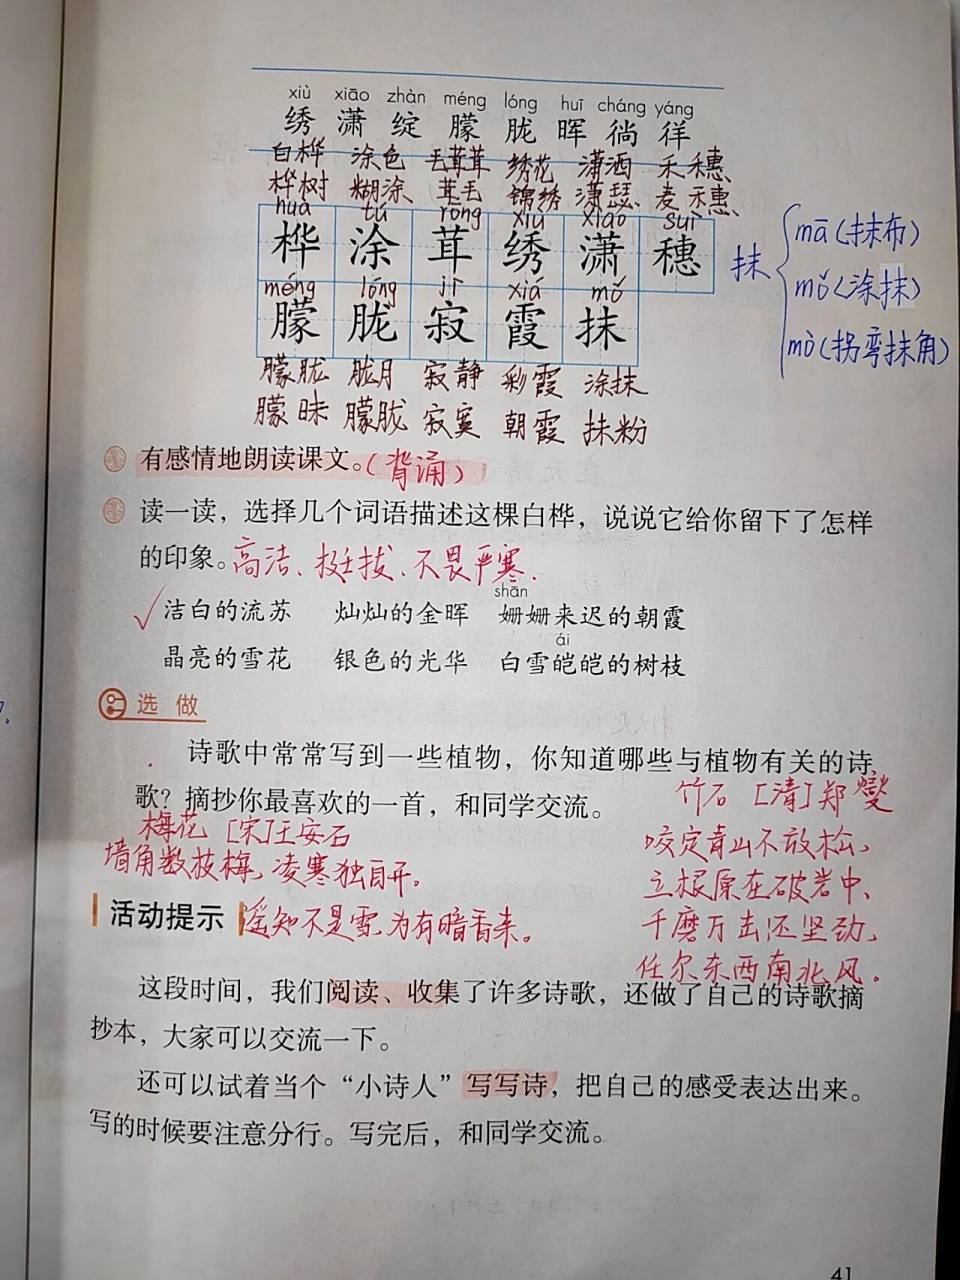 xiù xiāo zhàn méng lóng huī cháng yáng
绣 潇 绽 朦 胧 晖 徜 徉
白桦 涂色 毛茸茸 绣花 潇洒 禾穗
桦树 糊涂 茸毛 锦绣 潇瑟 麦穗
huà tú róng xiù xiāo suì
桦 涂 茸 绣 潇 穗
méng lóng jì xiá mǒ
朦 胧 寂 霞 抹
朦胧 胧月 寂静 彩霞 涂抹
朦昧 朦胧 寂寞 朝霞 抹粉
抹
mā(抹布)
mǒ(涂抹)
mò(拐弯抹角)
有感情地朗读课文。(背诵)
读一读，选择几个词语描述这棵白桦，说说它给你留下了怎样
的印象。高洁、挺拔、不畏严寒、
shān
洁白的流苏 灿灿的金晖 姗姗来迟的朝霞
ái
晶亮的雪花 银色的光华 白雪皑皑的树枝
选做
诗歌中常常写到一些植物，你知道哪些与植物有关的诗
歌？摘抄你最喜欢的一首，和同学交流。
梅花 [宋]王安石
墙角数枝梅，凌寒独自开。
遥知不是雪，为有暗香来。
竹石 [清]郑燮
咬定青山不放松，
立根原在破岩中、
千磨万击还坚劲，
任尔东西南北风。
活动提示
这段时间，我们阅读、收集了许多诗歌，还做了自己的诗歌摘
抄本，大家可以交流一下。
还可以试着当个“小诗人”写写诗，把自己的感受表达出来。
写的时候要注意分行。写完后，和同学交流。
41